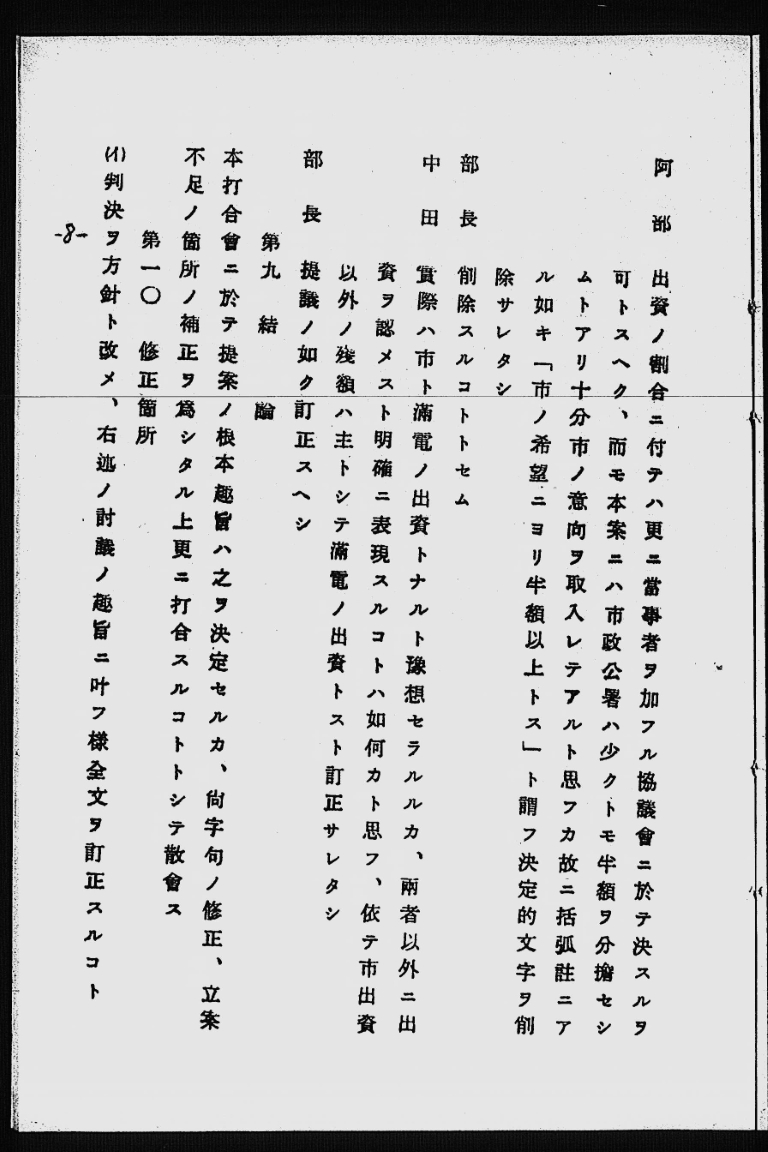 阿部　出資ノ割合ニ付テハ更ニ當事者ヲ加フル協議會ニ於テ決スルヲ
可トスヘク、而モ本案ニハ市政公署ハ少クトモ半額ヲ分擔セシ
ムトアリ十分市ノ意向ヲ取入レテアルト思フカ故ニ括弧註ニア
ル如キ「市ノ希望ニヨリ半額以上トス」ト謂フ決定的文字ヲ削
除サレタシ
部長　削除スルコトトセム
中田　實際ハ市ト滿電ノ出資トナルト豫想セラルルカ、兩者以外ニ出
資ヲ認メスト明確ニ表現スルコトハ如何カト思フ、依テ市出資
以外ノ殘額ハ主トシテ滿電ノ出資トスト訂正サレタシ
部長　提議ノ如ク訂正スヘシ
第九　結論
本打合會ニ於テ提案ノ根本趣旨ハ之ヲ決定セルカ、尙字句ノ修正、立案
不足ノ箇所ノ補正ヲ爲シタル上更ニ打合スルコトトシテ散會ス
第一〇　修正箇所
(イ)判決ヲ方針ト改メ、右述ノ討議ノ趣旨ニ叶フ樣全文ヲ訂正スルコト
-8-